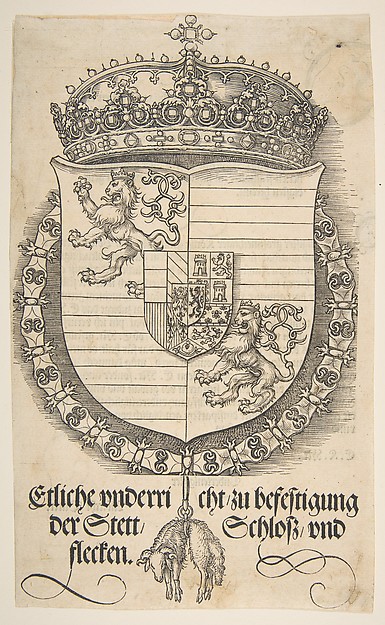 Etliche vnderri cht/ zu befestigung
der Stett/ Schloß/ vnd
flecken.